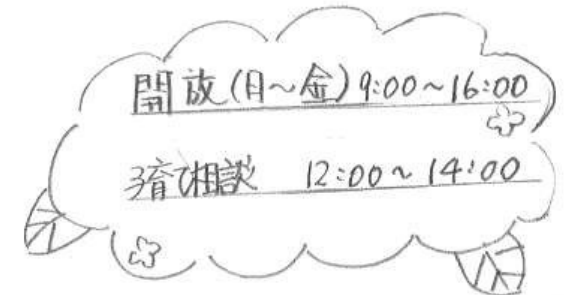 開放(日～金)9:00～16:00
子育て相談 12:00～14:00